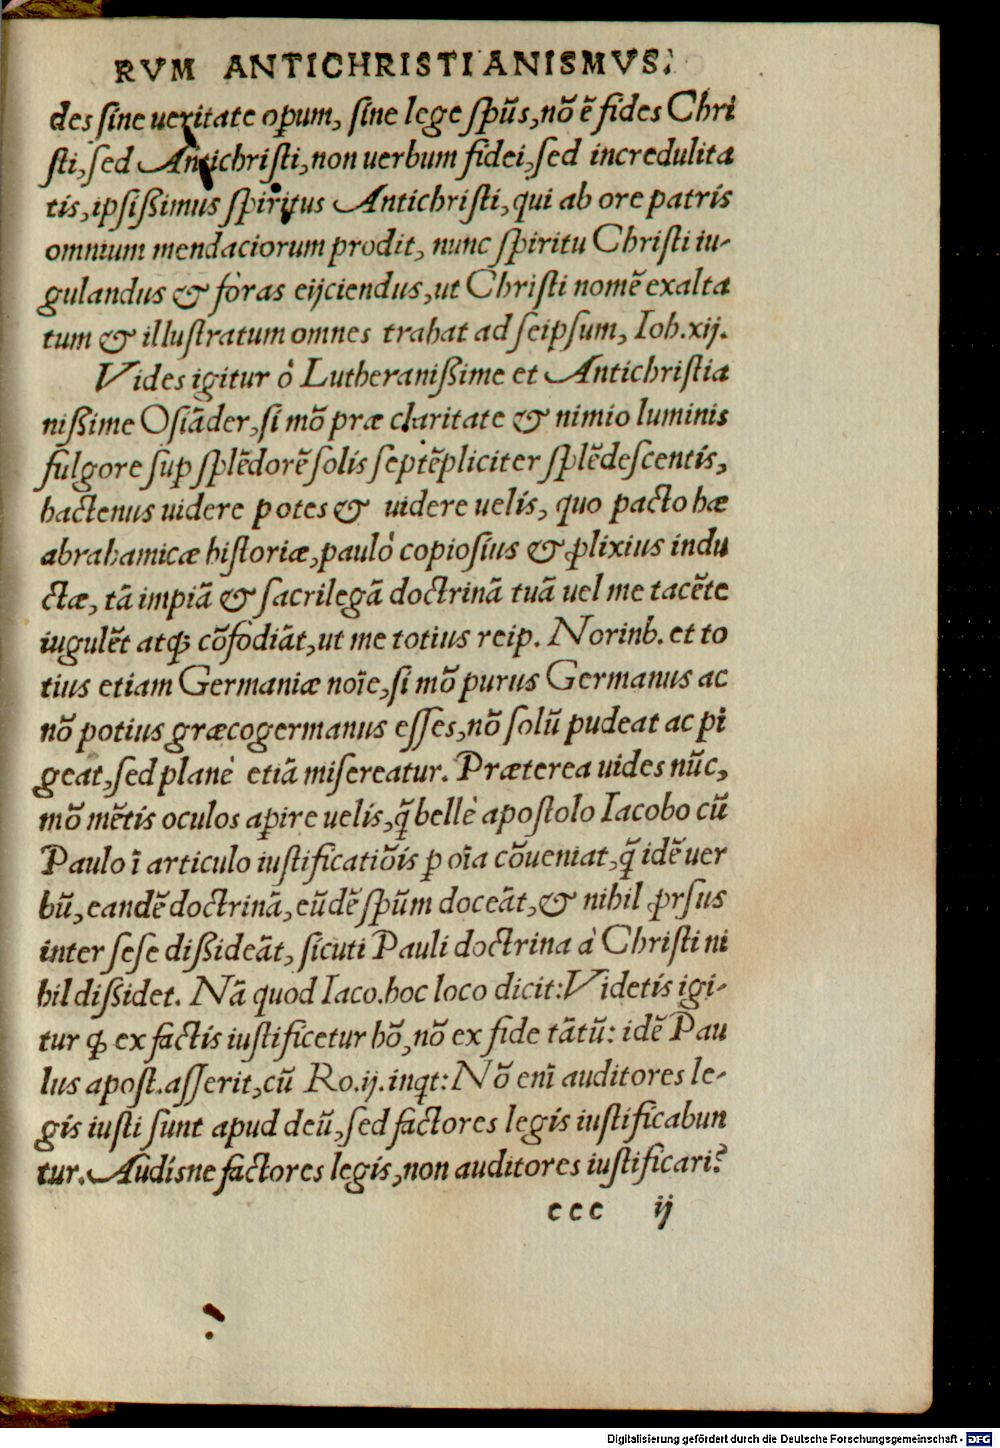 RVM ANTICHRISTIANISMVS.
des sine ueritate operum, sine lege sp̃us, nõ ẽ fides Chri
sti, sed Antichristi, non uerbum fidei, sed incredulita
tis, ipsißimus spiritus Antichristi, qui ab ore patris
omnium mendaciorum prodit, nunc spiritu Christi iu-
gulandus & foras eijciendus, ut Christi nomẽ exalta
tum & illustratum omnes trahat ad seipsum, Ioh.xij.
Vides igitur ò Lutheranißime et Antichristia
nißime Osiãder, si mõ præ claritate & nimio luminis
fulgore suꝑ splẽdorẽ solis septẽpliciter splẽdescentis,
hactenus uidere potes & uidere uelis, quo pacto hæ
abrahamicæ historiæ, pauló copiosius & ꝓlixius indu
ctæ, tã impiã & sacrilegã doctrinã tuã uel me tacẽte
iugulẽt atqꝫ cõfodiãt, ut me totius reip. Norinb. et to
tius etiam Germaniæ noĩe, si mõ purus Germanus ac
nõ potius græcogermanus esses, nõ solũ pudeat ac pi
geat, sed planè etiã misereatur. Præterea uides nũc,
mõ mẽtis oculos aꝑire uelis, q̃ bellè apostolo Iacobo cũ
Paulo ĩ articulo iustificatiõis ꝑ oĩa cõueniat, q̃ idẽ uer
bũ, eandẽ doctrinã, eũdẽ sp̃um doceãt, & nihil ꝓrsus
inter sese dißideãt, sicuti Pauli doctrina à Christi ni
hil dißidet. Nã quod Iaco. hoc loco dicit: Videtis igi-
tur ꝙ ex factis iustificetur hõ, nõ ex fide tãtũ: idẽ Pau
lus apost. asserit, cũ Ro.ij. inqt: Nõ enĩ auditores le-
gis iusti sunt apud deũ, sed factores legis iustificabun
tur. Audisne factores legis, non auditores iustificari?
ccc ij
Digitalisierung gefördert durch die Deutsche Forschungsgemeinschaft - DFG